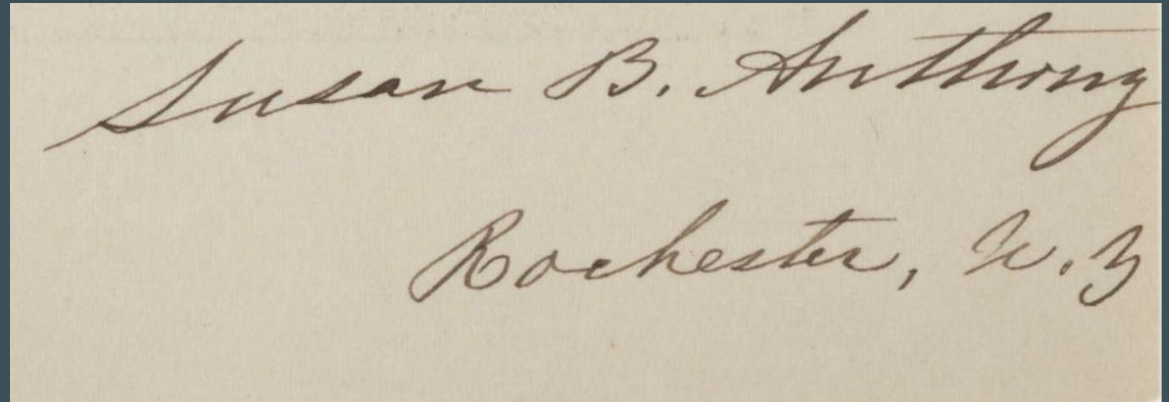 Susan B. Anthony
Rochester, N.Y